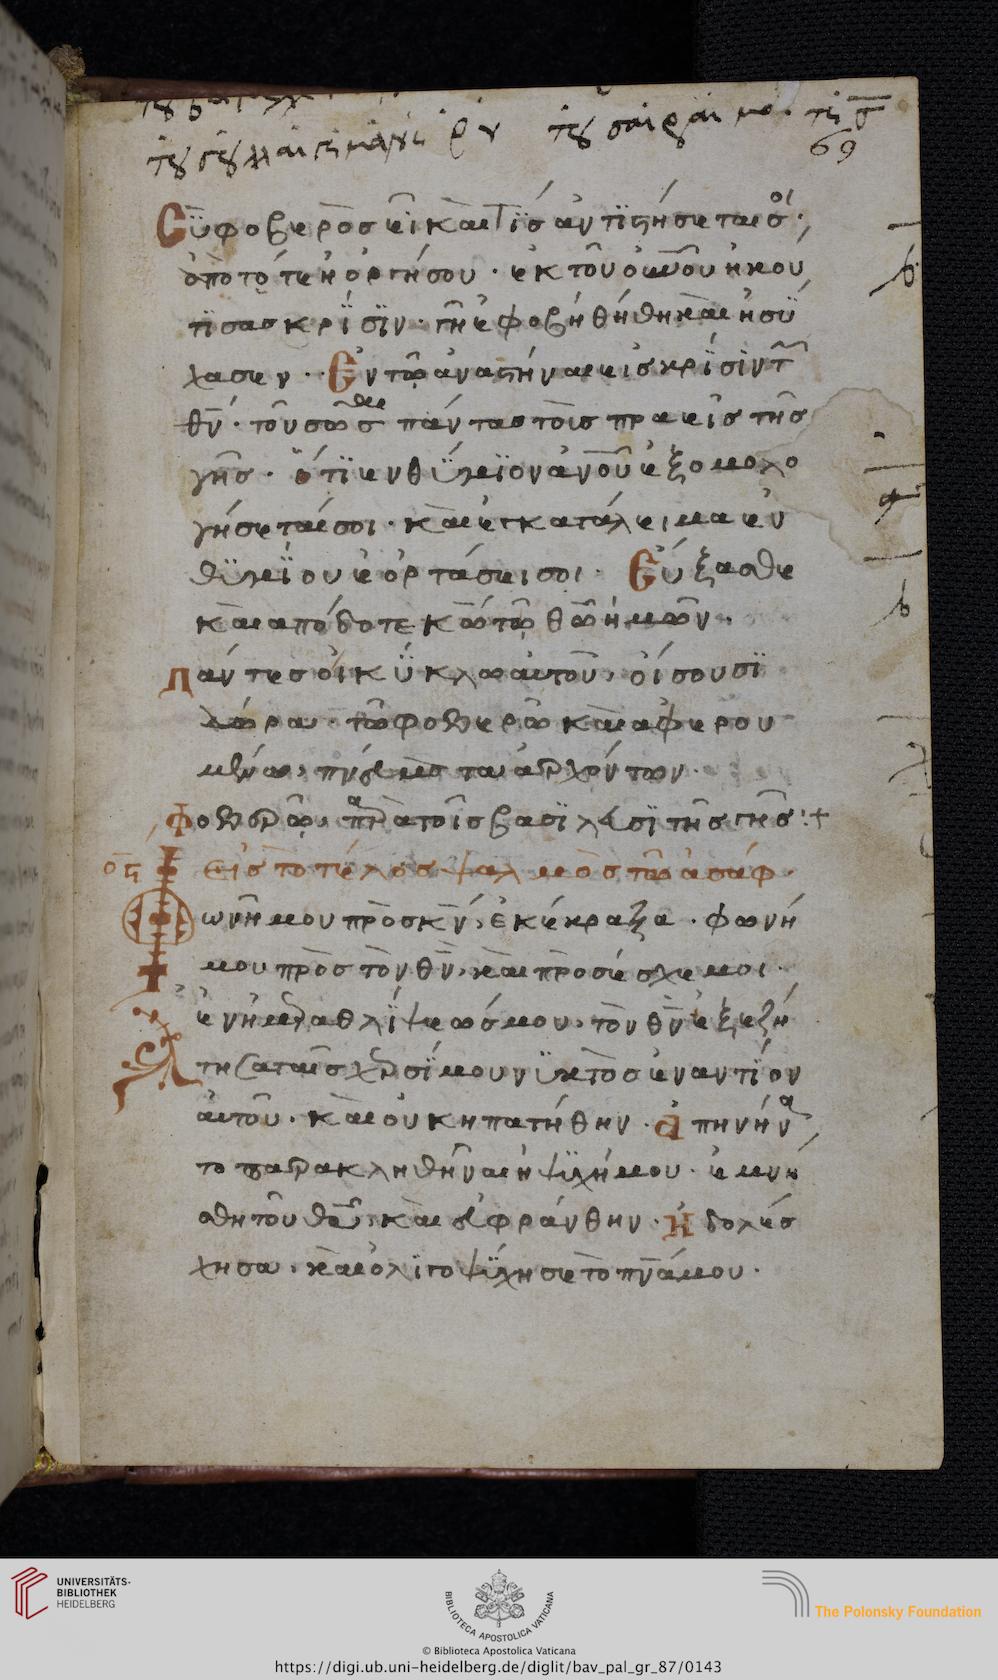 69
Σὺ φοβερὸς εἶ καὶ τίς ἀντιστήσεταί σοι·
ἀπὸ τότε ἡ ὀργή σου · ἐκ τοῦ οὐνοῦ ἠκού
τισας κρίσιν · γῆ ἐφοβήθη καὶ ἡσύ
χασεν · Ἐν τῶ ἀναστῆναι εἰς κρίσιν τὸν
θν · τοῦ σῶσαι πάντας τοὺς πραεῖς τῆς
γῆς · ὅτι ἐνθύμιον ἀνου ἐξομολο
γήσεταί σοι · καὶ ἐγκατάλειμα ἐν
θυμίου ἑορτάσει σοι · Εὔξασθε
καὶ ἀπόδοτε κω τῶ θω ἡμῶν ·
Πάντες οἱ κύκλω αὐτοῦ οἴσουσι
δῶρα · τῶ φοβερῶ καὶ ἀφερου
μένω πνεύματα ἀρχόντων ·
Φοβερῶ παρὰ τοῖς βασιλεῦσι τῆς γῆς :+
ος Εἰς τὸ τέλος ψαλμὸς τῶ ἀσάφ ·
Φωνῆ μου πρὸς κν ἐκέκραξα · φωνή
μου πρὸς τὸν θν καὶ προσέσχε μοι ·
Ἐν ἡμέρα θλίψεώς μου τὸν θν ἐξεζή
τησα ταῖς χερσί μου νυκτὸς ἐναντίον
αὐτοῦ · καὶ οὐκ ηπατήθην · ἀπηνήνα
το παρακληθῆναι ἡ ψυχή μου · ἐμνή
σθην τοῦ θεοῦ καὶ εὐφράνθην · ἠδολές
χησα καὶ ὀλιγοψύχησε τὸ πνα μου ·
UNIVERSITÄTS-
BIBLIOTHEK
HEIDELBERG
BIBLIOTECA APOSTOLICA VATICANA
The Polonsky Foundation
© Biblioteca Apostolica Vaticana
https://digi.ub.uni-heidelberg.de/diglit/bav_pal_gr_87/0143